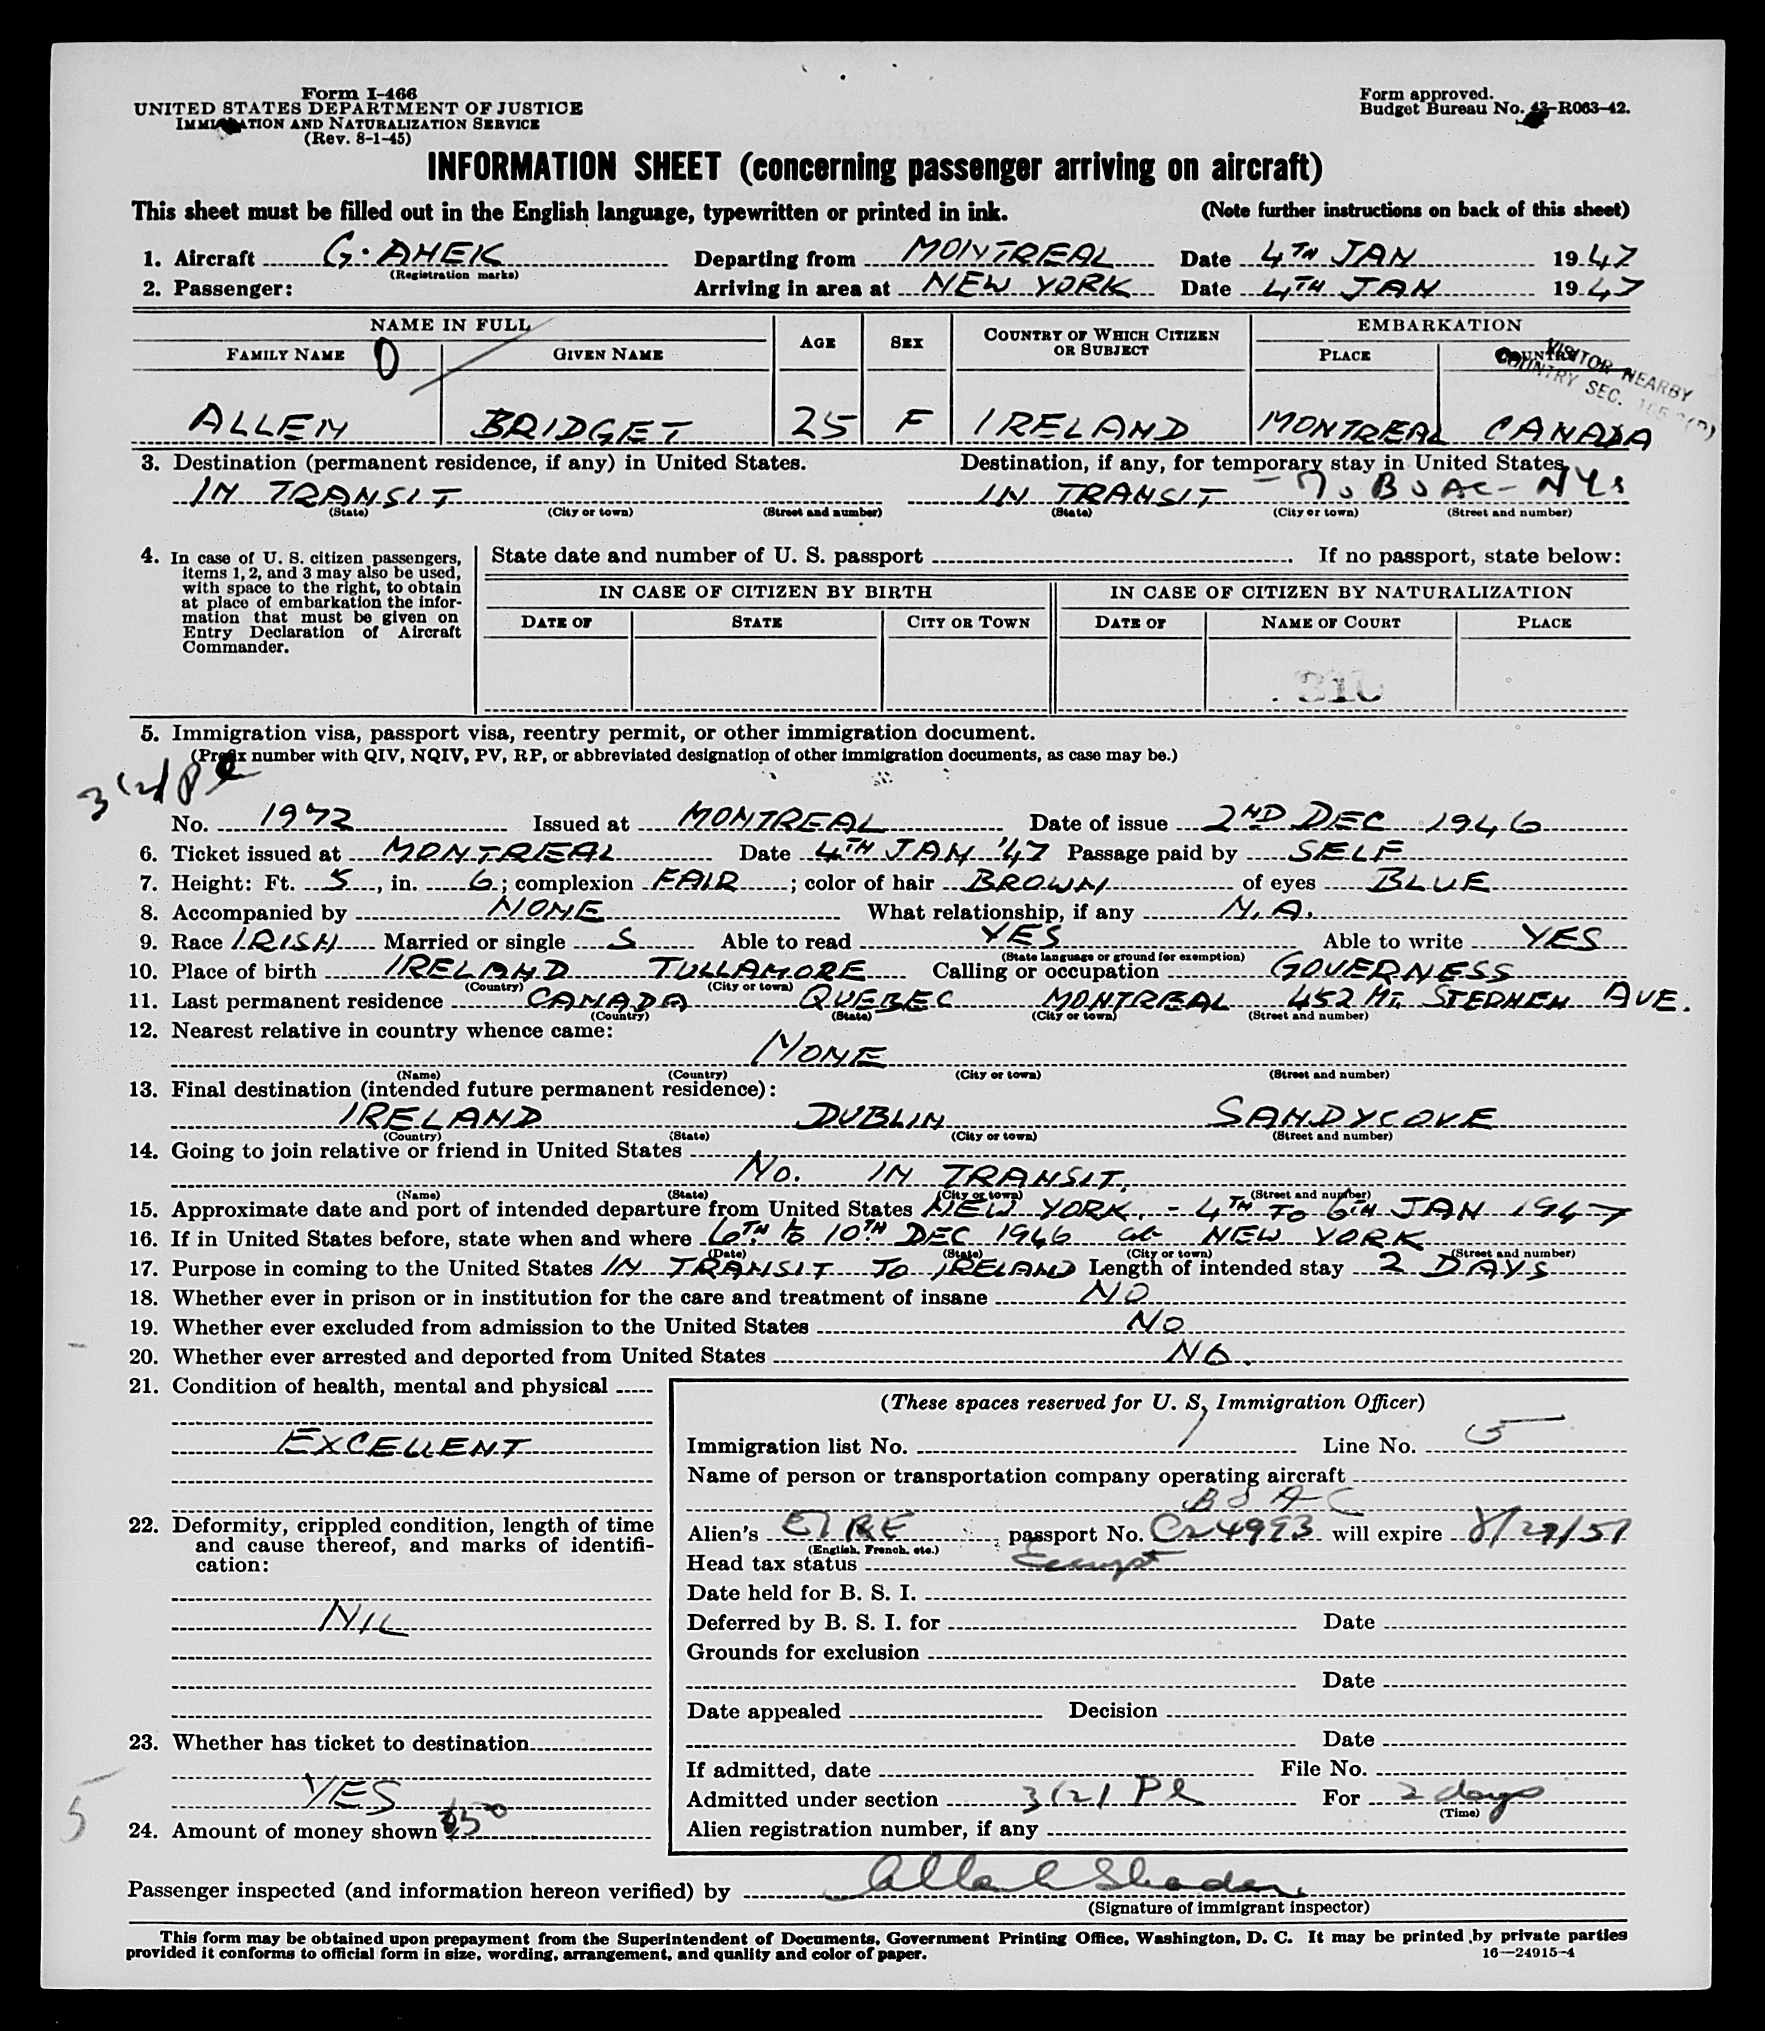 Form I-466
UNITED STATES DEPARTMENT OF JUSTICE
IMMIGRATION AND NATURALIZATION SERVICE
(Rev. 8-1-45)
Form approved.
Budget Bureau No. 43-R063-42.
INFORMATION SHEET (concerning passenger arriving on aircraft)
This sheet must be filled out in the English language, typewritten or printed in ink. (Note further instructions on back of this sheet)
1. Aircraft G·AHEK Departing from MONTREAL Date 4TH JAN 1947
(Registration marks)
2. Passenger: Arriving in area at NEW YORK Date 4TH JAN 1947
NAME IN FULL AGE SEX COUNTRY OF WHICH CITIZEN OR SUBJECT EMBARKATION
FAMILY NAME O GIVEN NAME PLACE COUNTRY
VISITOR NEARBY
COUNTRY SEC.
ALLEN BRIDGET 25 F IRELAND MONTREAL CANADA
3. Destination (permanent residence, if any) in United States. Destination, if any, for temporary stay in United States
IN TRANSIT IN TRANSIT
(State) (City or town) (Street and number) (State) (City or town) (Street and number)
4. In case of U. S. citizen passengers, items 1, 2, and 3 may also be used, with space to the right, to obtain at place of embarkation the information that must be given on Entry Declaration of Aircraft Commander.
State date and number of U. S. passport . If no passport, state below:
IN CASE OF CITIZEN BY BIRTH IN CASE OF CITIZEN BY NATURALIZATION
DATE OF STATE CITY OR TOWN DATE OF NAME OF COURT PLACE
310
5. Immigration visa, passport visa, reentry permit, or other immigration document.
(Prefix number with QIV, NQIV, PV, RP, or abbreviated designation of other immigration documents, as case may be.)
No. 1972 Issued at MONTREAL Date of issue 2ND DEC 1946
6. Ticket issued at MONTREAL Date 4TH JAN '47 Passage paid by SELF
7. Height: Ft. 5, in. 6; complexion FAIR; color of hair BROWN of eyes BLUE
8. Accompanied by NONE What relationship, if any N.A.
9. Race IRISH Married or single S Able to read YES Able to write YES
(State language or ground for exemption)
10. Place of birth IRELAND TULLAMORE Calling or occupation GOVERNESS
(Country) (City or town)
11. Last permanent residence CANADA QUEBEC MONTREAL 452 MT. STEPHEN AVE.
(Country) (State) (City or town) (Street and number)
12. Nearest relative in country whence came:
NONE
(Name) (Country) (City or town) (Street and number)
13. Final destination (intended future permanent residence):
IRELAND DUBLIN SANDYCOVE
(Country) (State) (City or town) (Street and number)
14. Going to join relative or friend in United States
NO. IN TRANSIT.
(Name) (State) (City or town) (Street and number)
15. Approximate date and port of intended departure from United States NEW YORK. - 4TH TO 6TH JAN 1947
16. If in United States before, state when and where 6TH to 10TH DEC 1946 NEW YORK
(Date) (State) (City or town) (Street and number)
17. Purpose in coming to the United States IN TRANSIT TO IRELAND Length of intended stay 2 DAYS
18. Whether ever in prison or in institution for the care and treatment of insane NO
19. Whether ever excluded from admission to the United States NO
20. Whether ever arrested and deported from United States NO.
21. Condition of health, mental and physical
EXCELLENT
22. Deformity, crippled condition, length of time and cause thereof, and marks of identification:
NIL
23. Whether has ticket to destination
YES
5
24. Amount of money shown $50
(These spaces reserved for U. S. Immigration Officer)
Immigration list No. Line No. 5
Name of person or transportation company operating aircraft
BOAC
Alien's EIRE passport No. C24993 will expire 8/29/51
(English, French, etc.)
Head tax status Exempt
Date held for B. S. I.
Deferred by B. S. I. for Date
Grounds for exclusion
Date
Date appealed Decision
Date
If admitted, date File No.
Admitted under section 3(2) Pl For 2 days
(Time)
Alien registration number, if any
Passenger inspected (and information hereon verified) by
(Signature of immigrant inspector)
This form may be obtained upon prepayment from the Superintendent of Documents, Government Printing Office, Washington, D. C. It may be printed by private parties
provided it conforms to official form in size, wording, arrangement, and quality and color of paper. 16—24915-4